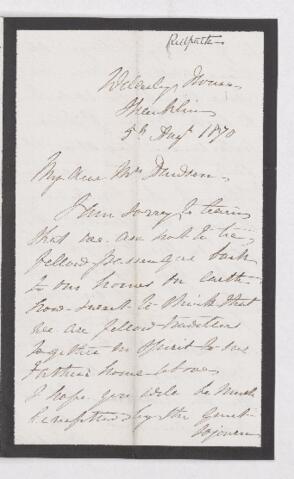 Redpath
House
5th Augt 1870
My dear Mrs Dawson
I am sorry to learn
that we are not to be
fellow passengers back
to our homes on earth
how sweet to think that
we are fellow travellers
together in spirit to our
Father's home above
I hope you will be much
benefitted by the quiet
sojourn